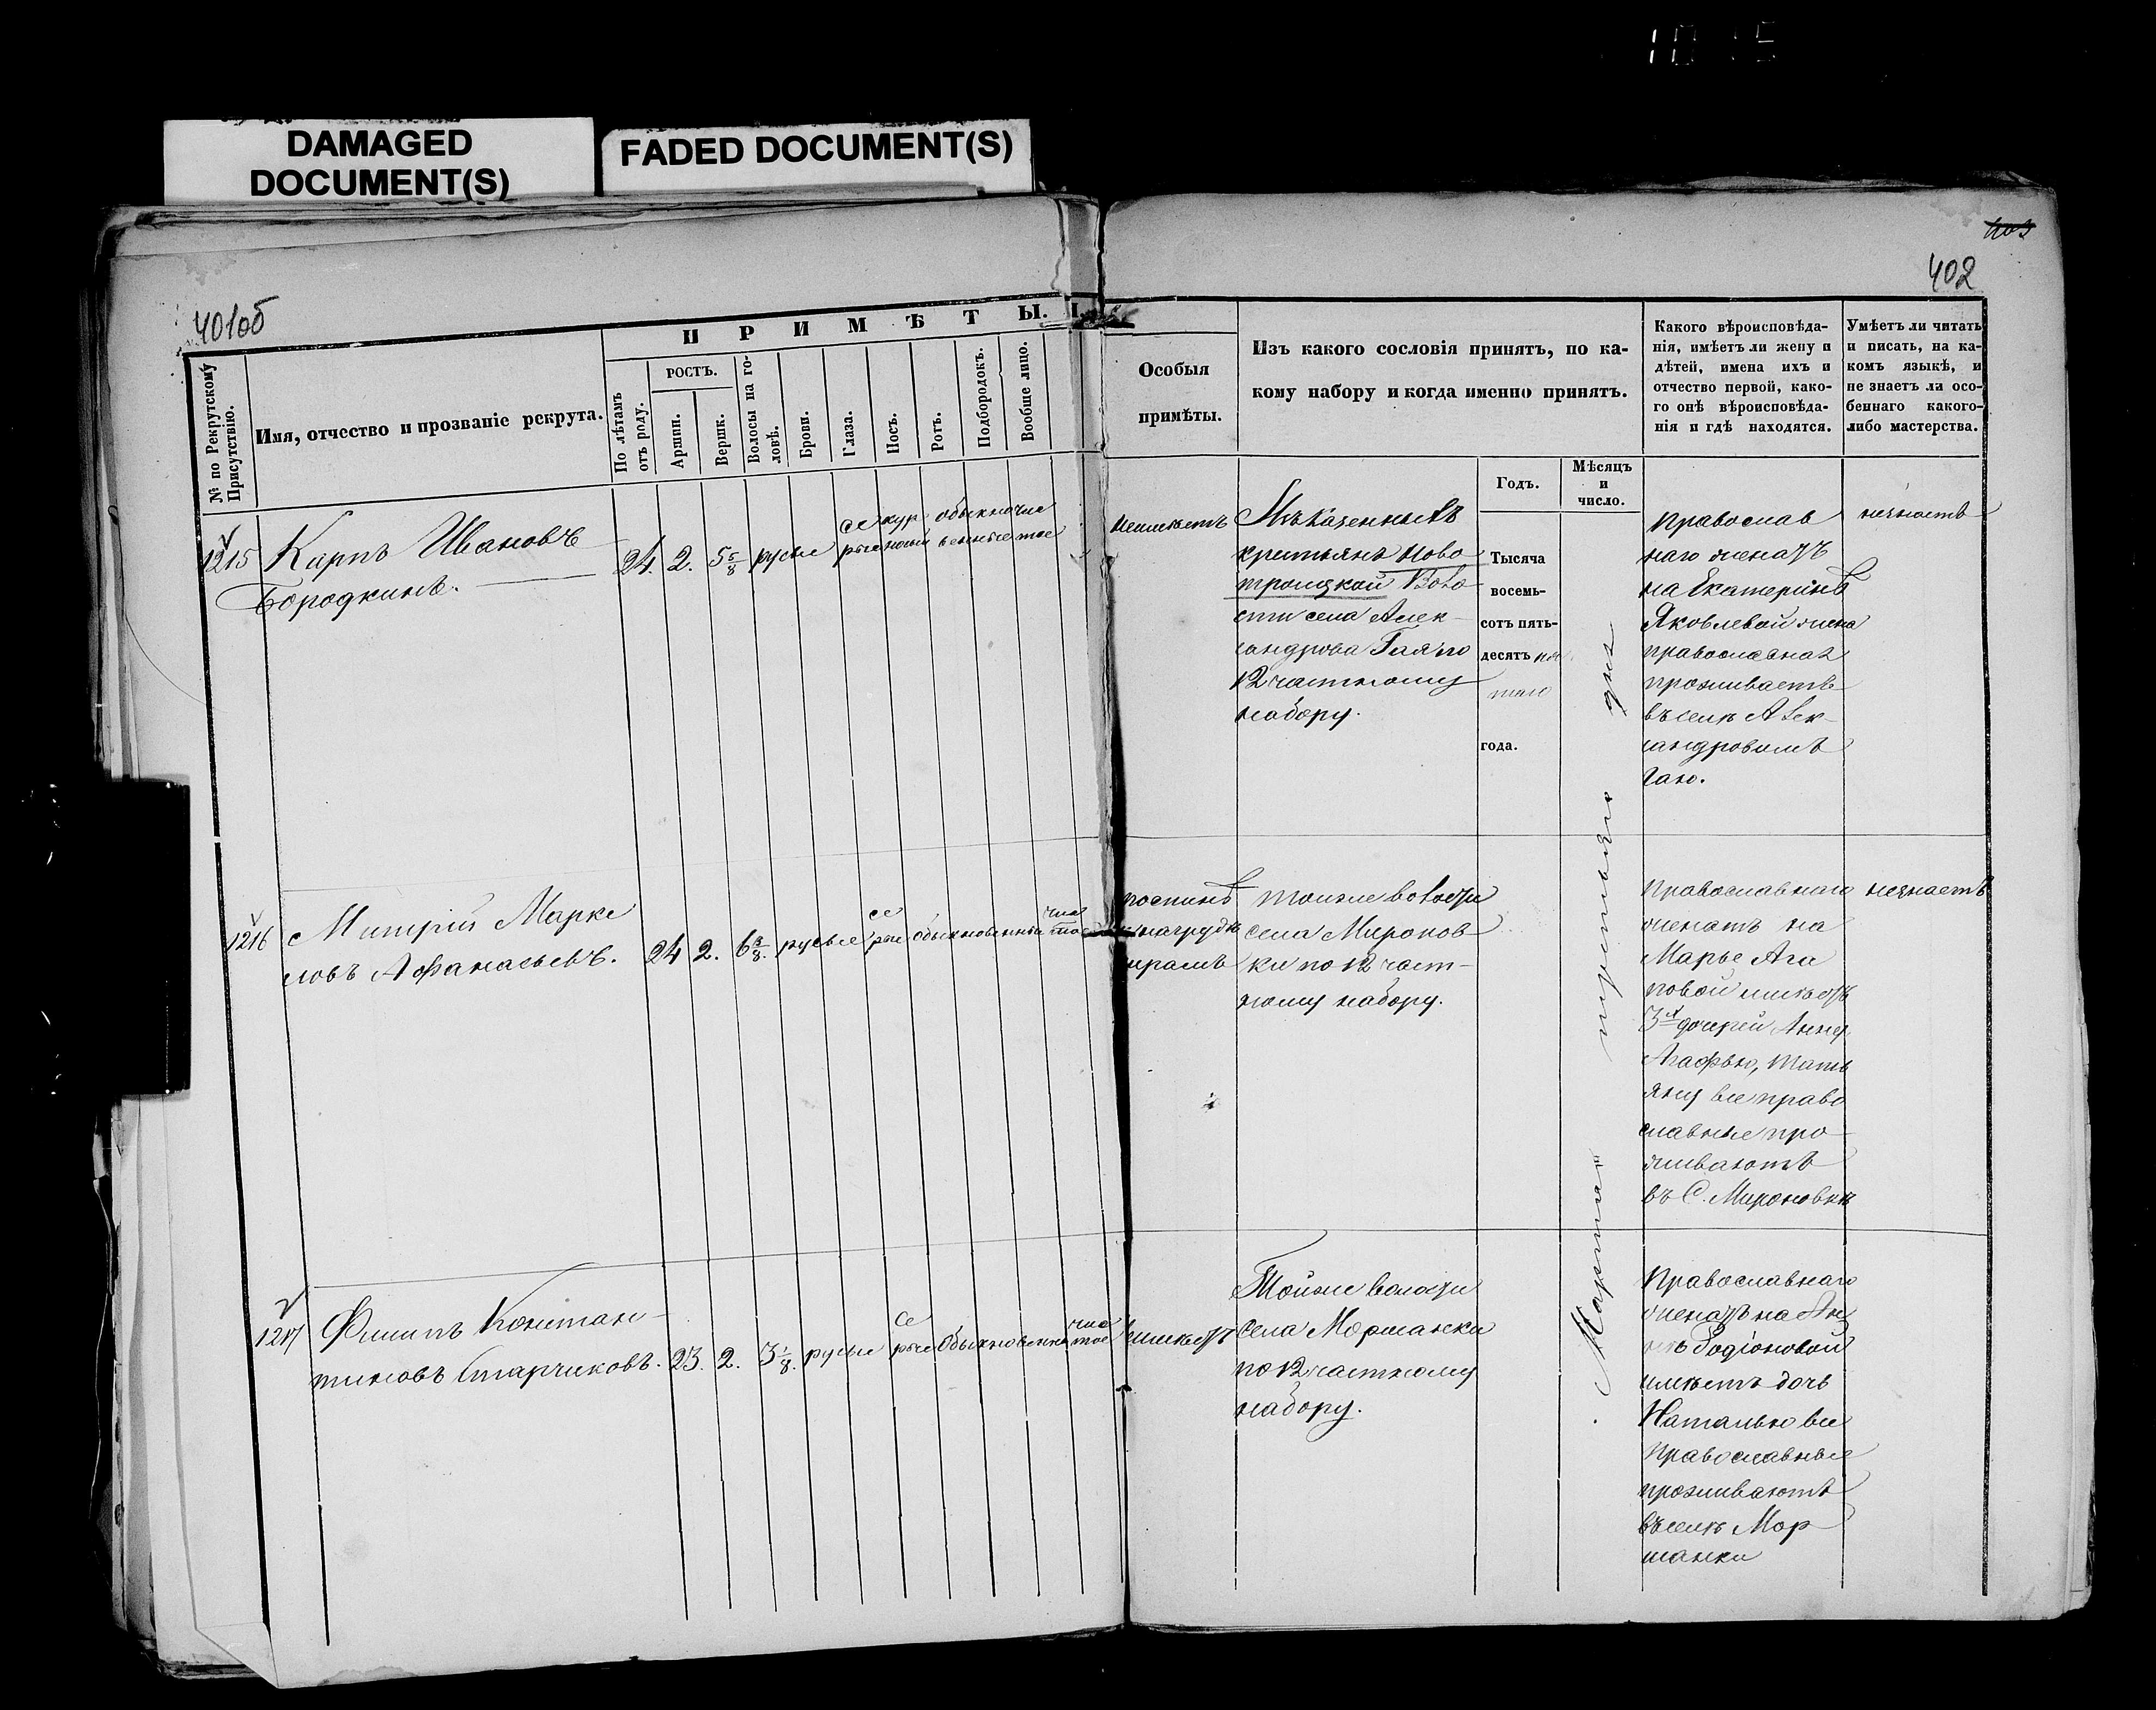 10 15
DAMAGED
DOCUMENT(S)
FADED DOCUMENT(S)
401об
402
№ по Рекрутскому Присутствію.
Имя, отчество и прозваніе рекрута.
ПРИМѢТЫ.
По лѣтамъ отъ роду.
РОСТЪ.
Аршин.
Вершк.
Волосы на головѣ.
Брови.
Глаза.
Носъ.
Ротъ.
Подбородокъ.
Вообще лицо.
Особыя
примѣты.
Изъ какого сословія принятъ, по ка-
кому набору и когда именно принятъ.
Годъ.
Мѣсяцъ
и
число.
Какого вѣроисповѣда-
нія, имѣетъ ли жену и
дѣтей, имена ихъ и
отчество первой, како-
го онѣ вѣроисповѣда-
нія и гдѣ находятся.
Умѣетъ ли читать
и писать, на ка-
комъ языкѣ, и
не знаетъ ли осо-
беннаго какого-
либо мастерства.
1215
Карпъ Ивановъ
Бородкинъ.
24. 2. 5 5/8 русые
се
рые
кур
носый
обыкно
венные
чис
тое
неимѣетъ
Изъ казенныхъ
крестьянъ Ново
троицкой Воло
сти села Алек-
сандрова Гая по
12 частному
набору.
Тысяча
восемь-
сотъ пять-
десятъ пя
таго
года.
Марта третьяго дня
Православ
наго женатъ
на Екатеринѣ
Яковлевой жена
православная
проживаетъ
въ селѣ Алек-
сандровомъ
Гаю.
незнаетъ
1216
Митрій Марке
ловъ Афанасьевъ.
24 2. 6 3/8. русые
се
рые
обыкновенный
чис
тое
поспинѣ
и нагруди
шрамъ
тойже волости
села Миронов
ки по 12 част-
ному набору.
Православнаго
женатъ на
Марье Ага
повой имѣетъ
3х дочерей Анну
Агафью, Тать
яну все право
славные про-
живаютъ
въ С. Мироновки
незнаетъ
1217
Филипъ Констан-
тиновъ Старчиковъ.
23. 2. 3 1/8. русые
се
рые
Обыкновенны
чис
тое
неимѣетъ
Тойже волости
села Моршанки
по 12 частному
набору.
Православнаго
женатъ на Ан
нѣ Родіоновой
имѣетъ дочь
Наталью все
Православные
проживаютъ
въ селѣ Мор
шанки